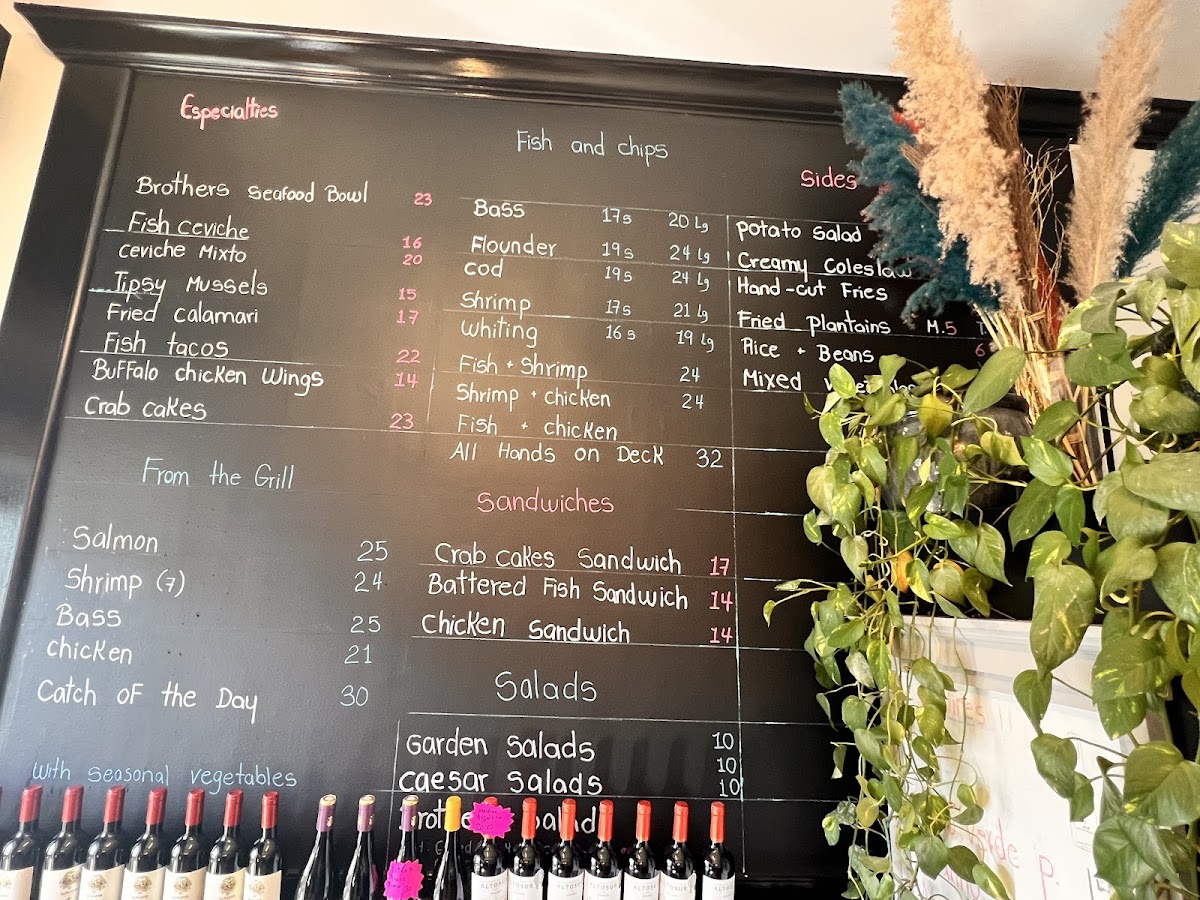 Especialties
Brothers Seafood Bowl 23
Fish ceviche 16
ceviche Mixto 20
Tipsy Mussels 15
Fried calamari 17
Fish tacos 22
Buffalo chicken Wings 14
Crab cakes 23
From the Grill
Salmon 25
Shrimp (7) 24
Bass 25
chicken 21
Catch of the Day 30
with seasonal vegetables
Fish and chips
Bass 17s 20 Lg
Flounder 19s 24 Lg
cod 19s 24 Lg
Shrimp 17s 21 Lg
whiting 16s 19 Lg
Fish + Shrimp 24
Shrimp + chicken 24
Fish + chicken
All Hands on Deck 32
Sandwiches
Crab cakes Sandwich 17
Battered Fish Sandwich 14
Chicken Sandwich 14
Salads
Garden Salads 10
caesar Salads 10
10
Sides
potato Salad
Creamy Coleslaw
Hand-cut Fries
Fried Plantains M.5
Rice + Beans 6
Mixed
ALTOSUR
ALTOSUR
ALTOSUR